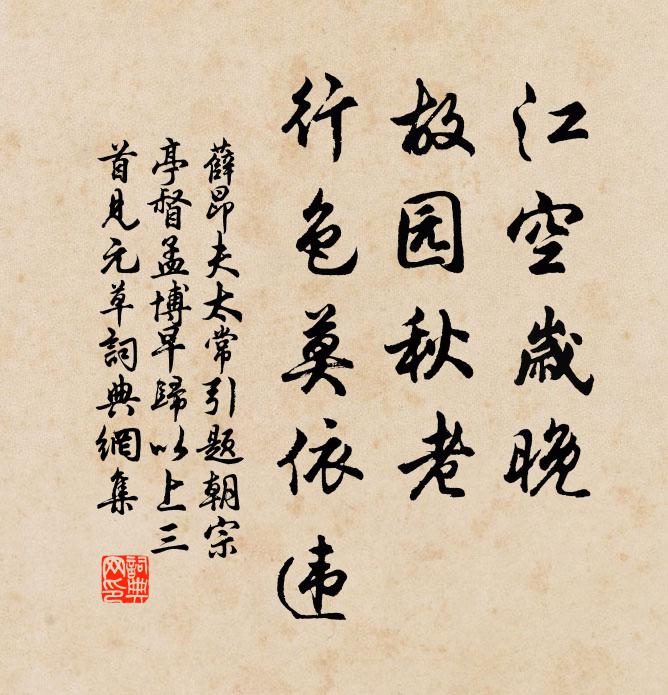 江空歲晚
故园秋老
行色莫依违
薛昂夫太常引题朝宗
亭督孟博早歸以上三
首見元草詞典網集
詞典
网印